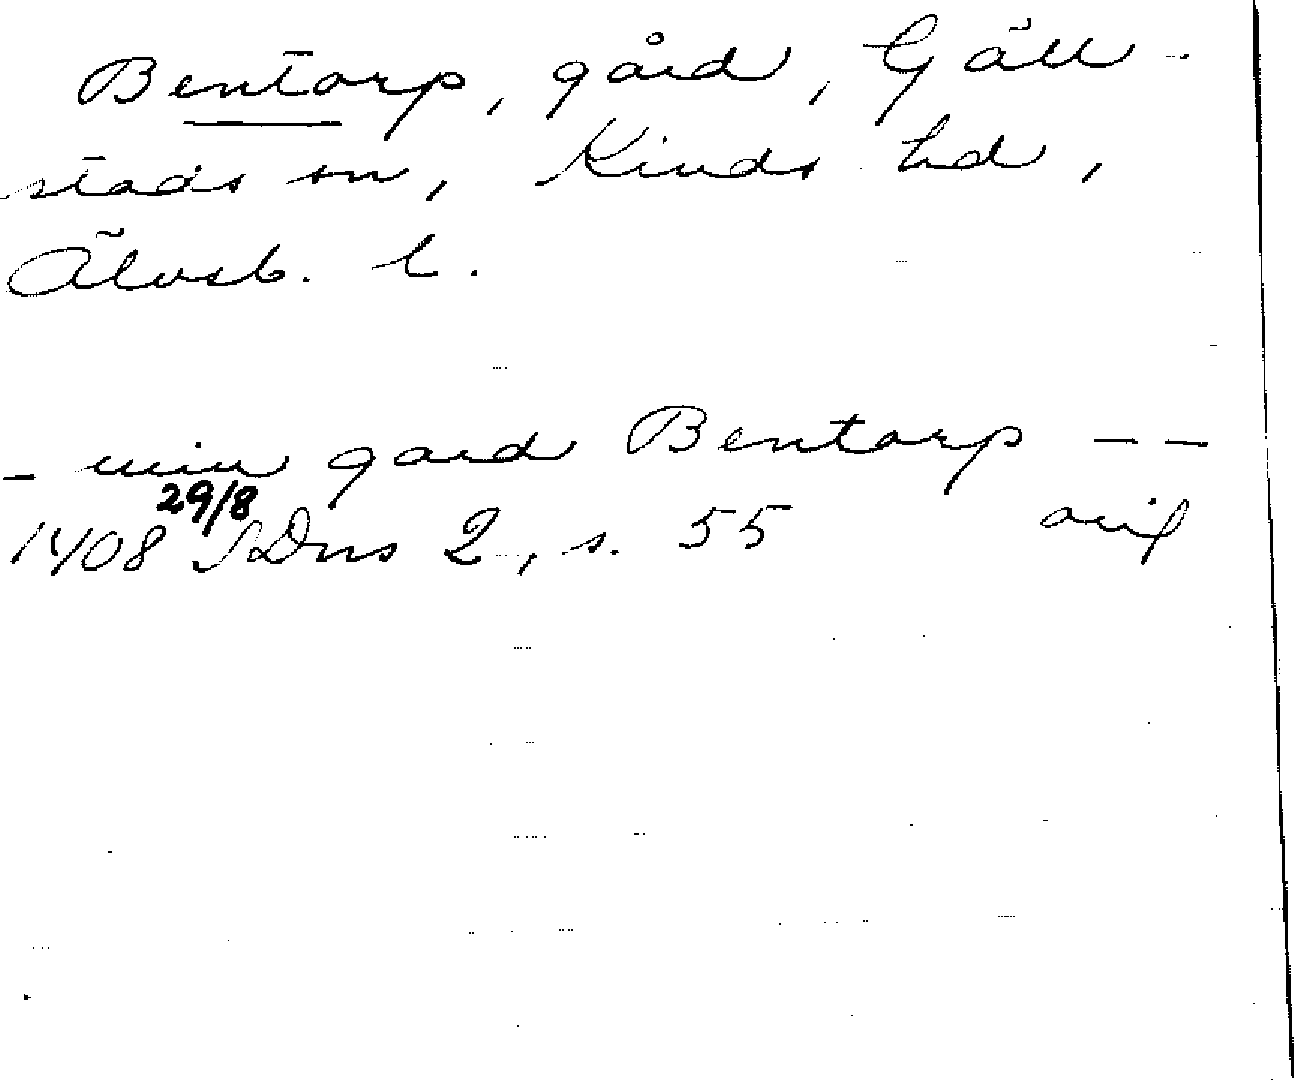 Bentorp, gård, Gäll-
stads sn, Kinds hd,
Älvsb. l.
- min gard Bentorp --
29/8
1408 SDns 2, s. 55 avs